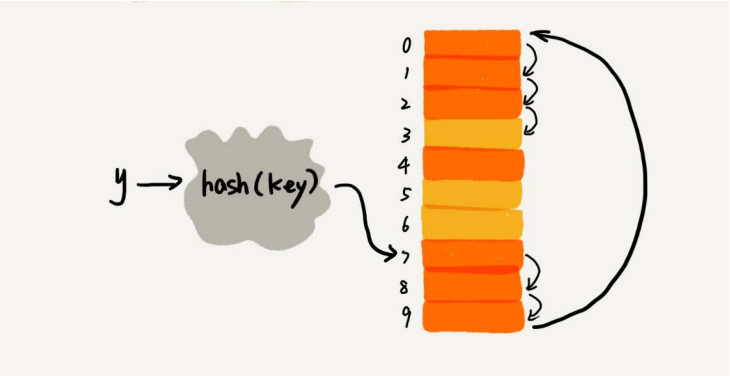 y
hash(key)
0
1
2
3
4
5
6
7
8
9